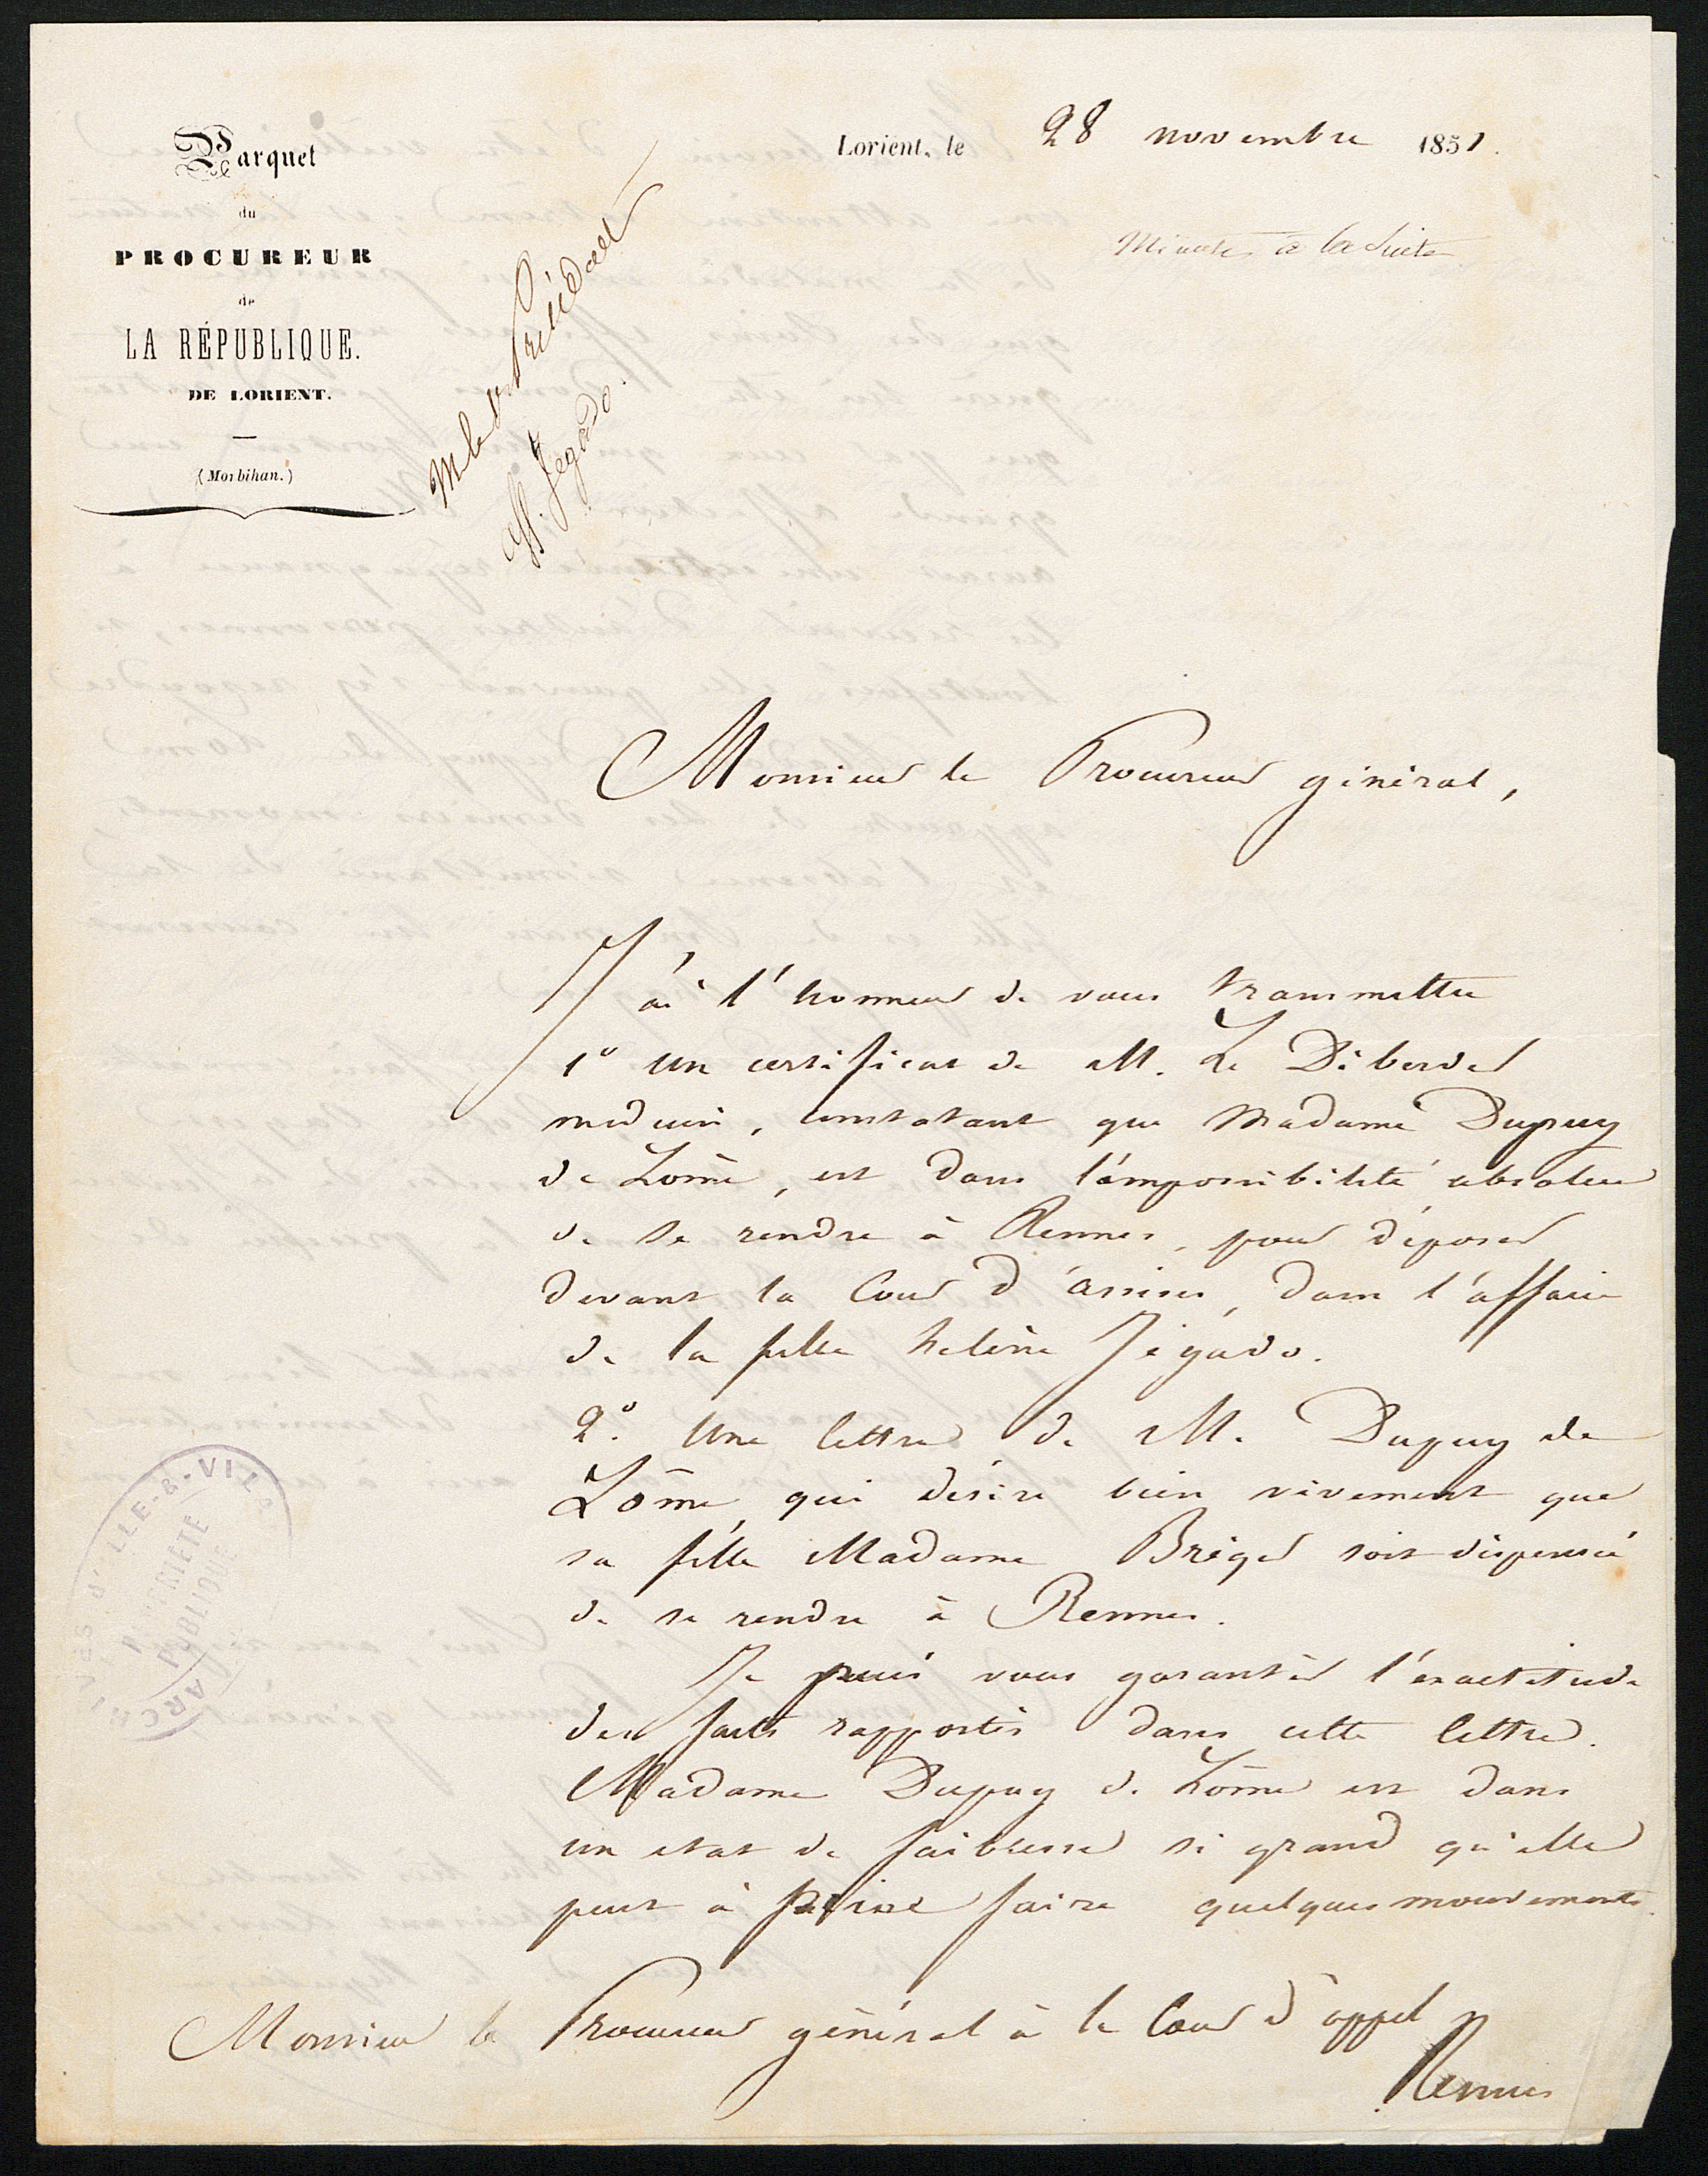 Parquet
du
PROCUREUR
de
LA RÉPUBLIQUE.
DE LORIENT.
(Morbihan.)
Lorient, le 28 novembre 1851.
M le Président
aff. Jegado.
Monsieur le Procureur général,
J'ai l'honneur de vous transmettre
1° un certificat de M. Le Diberder
médecin, constatant que Madame Dupuy
de Lôme, est dans l'impossibilité absolue
de se rendre à Rennes, pour déposer
devant la Cour d'assises, dans l'affaire
de la fille helène Jégado.
2°. Une lettre de M. Dupuy de
Lôme, qui désire bien vivement que
sa fille Madame Briger soit dispensée
de se rendre à Rennes.
Je puis vous garantir l'exactitude
des faits rapportés dans cette lettre.
Madame Dupuy de Lôme est dans
un etat de faiblesse si grand qu'elle
peut à peine faire quelques mouvements.
Monsieur le Procureur général à la Cour d'appel
Rennes
ARCHIVES d'ILLE-&-VILAINE
PROPRIÉTÉ
PUBLIQUE